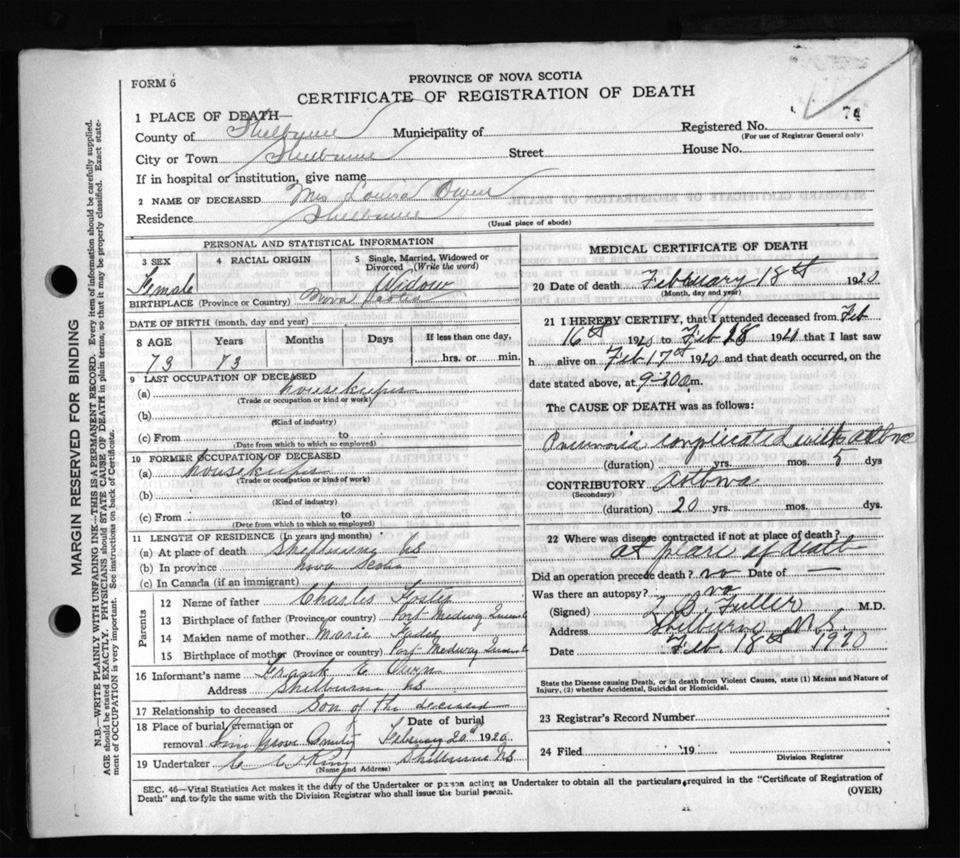 FORM 6
PROVINCE OF NOVA SCOTIA
CERTIFICATE OF REGISTRATION OF DEATH
1 PLACE OF DEATH—
County of Shelburne Municipality of
Registered No. 74
(For use of Registrar General only)
City or Town Shelburne Street House No.
If in hospital or institution, give name
2 NAME OF DECEASED Mrs Louisa Owen
Residence Shelburne
(Usual place of abode)
PERSONAL AND STATISTICAL INFORMATION
3 SEX 4 RACIAL ORIGIN 5 Single, Married, Widowed or Divorced (Write the word)
Female Widow
BIRTHPLACE (Province or Country) Nova Scotia
DATE OF BIRTH (month, day and year)
8 AGE Years Months Days If less than one day,
73 73 hrs. or min.
9 LAST OCCUPATION OF DECEASED
(a) housekeeper
(Trade or occupation or kind or work)
(b)
(Kind of industry)
(c) From to
(Date from which to which so employed)
10 FORMER OCCUPATION OF DECEASED
(a) housekeeper
(Trade or occupation or kind of work)
(b)
(Kind of industry)
(c) From to
(Date from which to which so employed)
11 LENGTH OF RESIDENCE (In years and months)
(a) At place of death
(b) In province Nova Scotia
(c) In Canada (if an immigrant)
Parents
12 Name of father Charles Foster
13 Birthplace of father (Province or country) Port Medway
14 Maiden name of mother Marie
15 Birthplace of mother (Province or country) Port Medway
16 Informant's name Frank E Owen
Address Shelburne NS
17 Relationship to deceased Son of the deceased
18 Place of burial, cremation or Date of burial
removal Grove February 20th 1920
19 Undertaker King Shelburne NS
(Name and Address)
MEDICAL CERTIFICATE OF DEATH
20 Date of death February 18th 1920
(Month, day and year)
21 I HEREBY CERTIFY, that I attended deceased from Feb
16th 1920 to Feb 18 1920 that I last saw
h alive on Feb 17th 1920 and that death occurred, on the
date stated above, at 9-30 a m.
The CAUSE OF DEATH was as follows:
complicated with
(duration) yrs. mos. 5 dys
CONTRIBUTORY
(Secondary)
(duration) 20 yrs. mos. dys.
22 Where was disease contracted if not at place of death?
at place of death
Did an operation precede death? no Date of —
Was there an autopsy? no
(Signed) Fuller M.D.
Address Shelburne N.S.
Date Feb. 18th 1920
State the Disease causing Death, or in death from Violent Causes, state (1) Means and Nature of
Injury, (2) whether Accidental, Suicidal or Homicidal.
23 Registrar's Record Number
24 Filed 19
Division Registrar
SEC. 46—Vital Statistics Act makes it the duty of the Undertaker or person acting as Undertaker to obtain all the particulars required in the "Certificate of Registration of
Death" and to fyle the same with the Division Registrar who shall issue the burial permit.
(OVER)
MARGIN RESERVED FOR BINDING
N.B.—WRITE PLAINLY WITH UNFADING INK—THIS IS A PERMANENT RECORD. Every item of information should be carefully supplied.
AGE should be stated EXACTLY. PHYSICIANS should STATE CAUSE OF DEATH in plain terms, so that it may be properly classified. Exact state-
ment of OCCUPATION is very important. See instructions on back of Certificate.